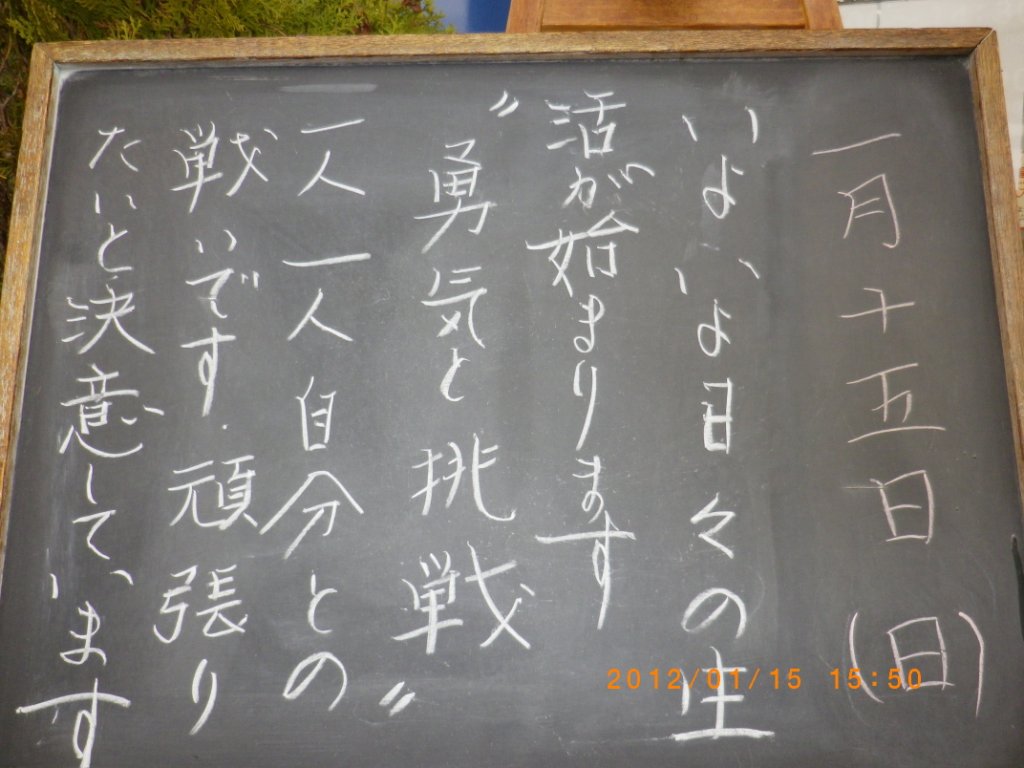 一月十五日(日)
いよいよ日々の生
活が始まります
〃勇気と挑戦〃
一人一人自分との
戦いです.頑張り
たいと決意しています
2012/01/15 15:50